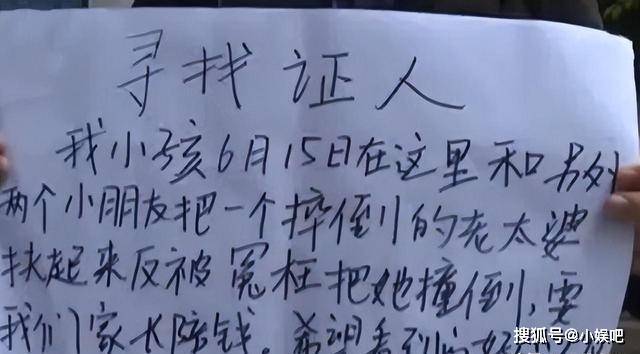 寻找证人
我小孩6月15日在这里和另外
两个小朋友把一个摔倒的老太婆
扶起来反被冤枉把她撞倒,要
我们家长陪钱。希望看到的好
搜狐号@小娱吧